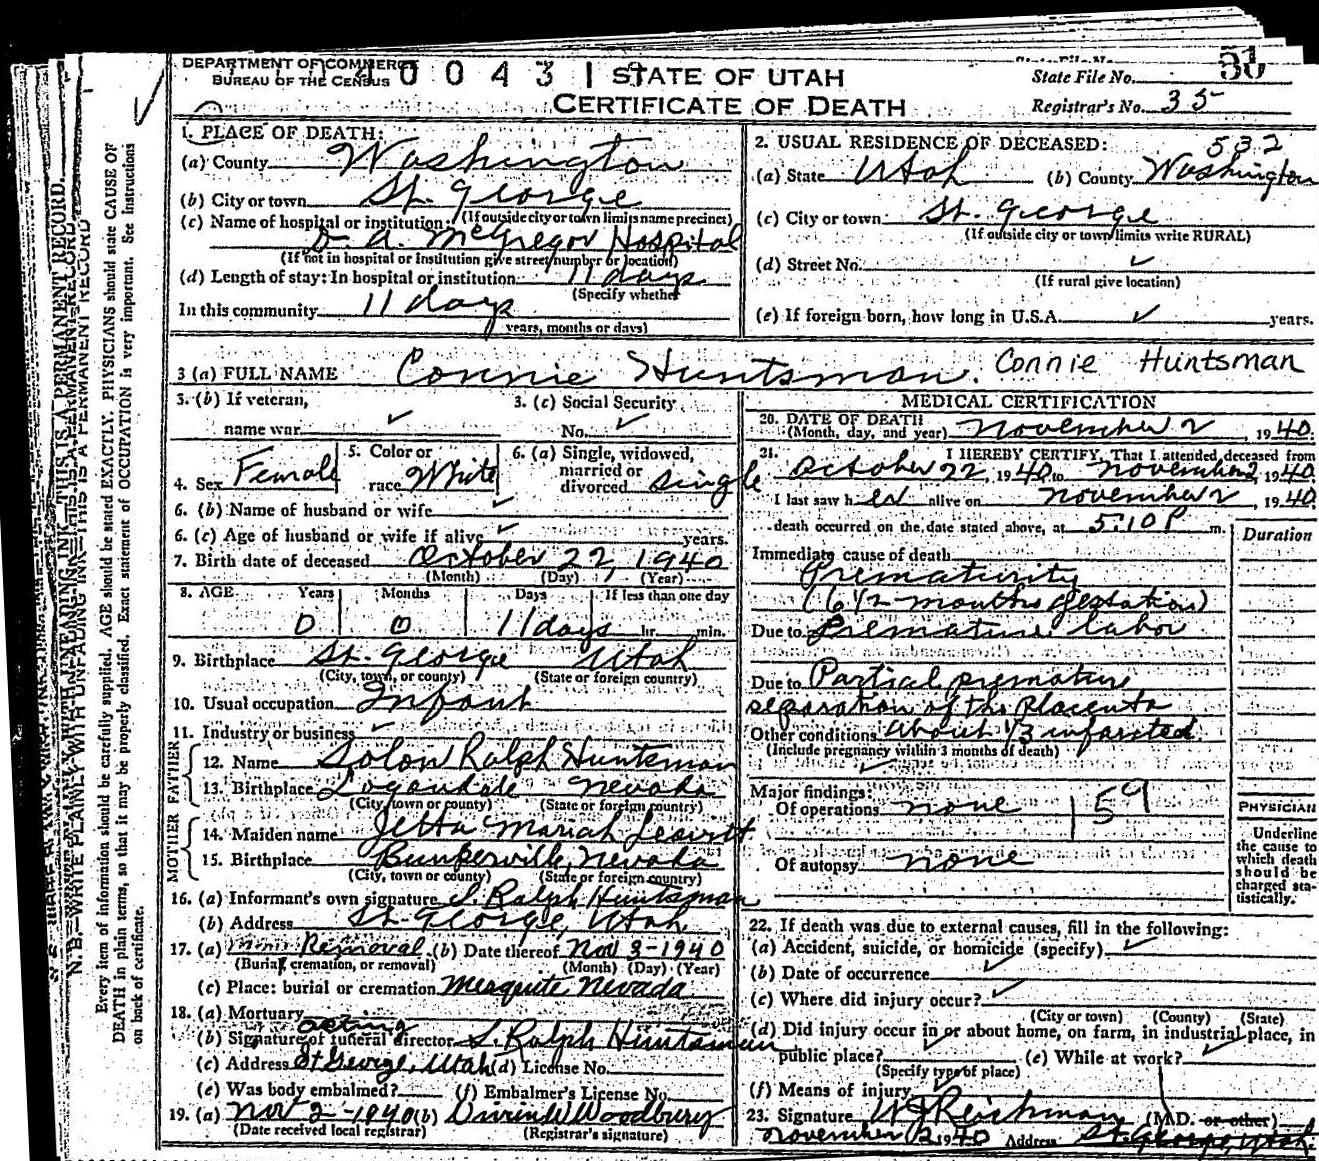 DEPARTMENT OF COMMERCE
BUREAU OF THE CENSUS
0 0 4 3 1
STATE OF UTAH
CERTIFICATE OF DEATH
State File No. 51
Registrar's No. 35
1. PLACE OF DEATH:
(a) County Washington
(b) City or town St. George
(If outside city or town limits name precinct)
(c) Name of hospital or institution:
D A. McGregor Hospital
(If not in hospital or institution give street number or location)
(d) Length of stay: In hospital or institution 11 days
(Specify whether
In this community 11 days
years, months or days)
2. USUAL RESIDENCE OF DECEASED: 532
(a) State Utah (b) County Washington
(c) City or town St. George
(If outside city or town limits write RURAL)
(d) Street No. ✓
(If rural give location)
(e) If foreign born, how long in U.S.A. ✓ years.
3 (a) FULL NAME Connie Huntsman. Connie Huntsman
3. (b) If veteran,
name war ✓
3. (c) Social Security
No. ✓
4. Sex Female
5. Color or
race White
6. (a) Single, widowed,
married or
divorced single
6. (b) Name of husband or wife ✓
6. (c) Age of husband or wife if alive ✓ years.
7. Birth date of deceased October 22, 1940
(Month) (Day) (Year)
8. AGE Years Months Days If less than one day
0 0 11 days hr. min.
9. Birthplace St. George Utah
(City, town, or county) (State or foreign country)
10. Usual occupation Infant
11. Industry or business ✓
FATHER
12. Name Solon Ralph Huntsman
13. Birthplace Logandale Nevada
(City, town or county) (State or foreign country)
MOTHER
14. Maiden name Jetta Mariah Leavitt
15. Birthplace Bunkerville, Nevada
(City, town or county) (State or foreign country)
16. (a) Informant's own signature S. Ralph Huntsman
(b) Address St. George, Utah
17. (a) Removal (b) Date thereof Nov 3-1940
(Burial, cremation, or removal) (Month) (Day) (Year)
(c) Place: burial or cremation Mesquite Nevada
18. (a) Mortuary
acting
(b) Signature of funeral director S. Ralph Huntsman
(c) Address St George, Utah (d) License No.
(e) Was body embalmed? (f) Embalmer's License No.
19. (a) Nov 2-1940 (b) Woodbury
(Date received local registrar) (Registrar's signature)
MEDICAL CERTIFICATION
20. DATE OF DEATH
(Month, day, and year) November 2, 1940.
21. I HEREBY CERTIFY, That I attended deceased from
October 22, 1940 to November 2, 1940.
I last saw her alive on November 2, 1940.
death occurred on the date stated above, at 5:10 P m.
Duration
Immediate cause of death
Prematurity
(6 1/2 months gestation)
Due to Premature labor
Due to Partial premature
separation of the Placenta
Other conditions about 1/3 infarcted
(Include pregnancy within 3 months of death)
✓
Major findings:
Of operations none 159
Of autopsy none
PHYSICIAN
Underline
the cause to
which death
should be
charged sta-
tistically.
22. If death was due to external causes, fill in the following:
(a) Accident, suicide, or homicide (specify) ✓
(b) Date of occurrence ✓
(c) Where did injury occur? ✓
(City or town) (County) (State)
(d) Did injury occur in or about home, on farm, in industrial place, in
public place? ✓ (e) While at work? ✓
(Specify type of place)
(f) Means of injury ✓
23. Signature Reichman (M.D. or other)
November 2 1940 Address St. George, Utah.
N. B.—WRITE PLAINLY WITH UNFADING INK—THIS IS A PERMANENT RECORD
Every item of information should be carefully supplied. AGE should be stated EXACTLY. PHYSICIANS should state CAUSE OF
DEATH in plain terms, so that it may be properly classified. Exact statement of OCCUPATION is very important. See Instructions
on back of certificate.